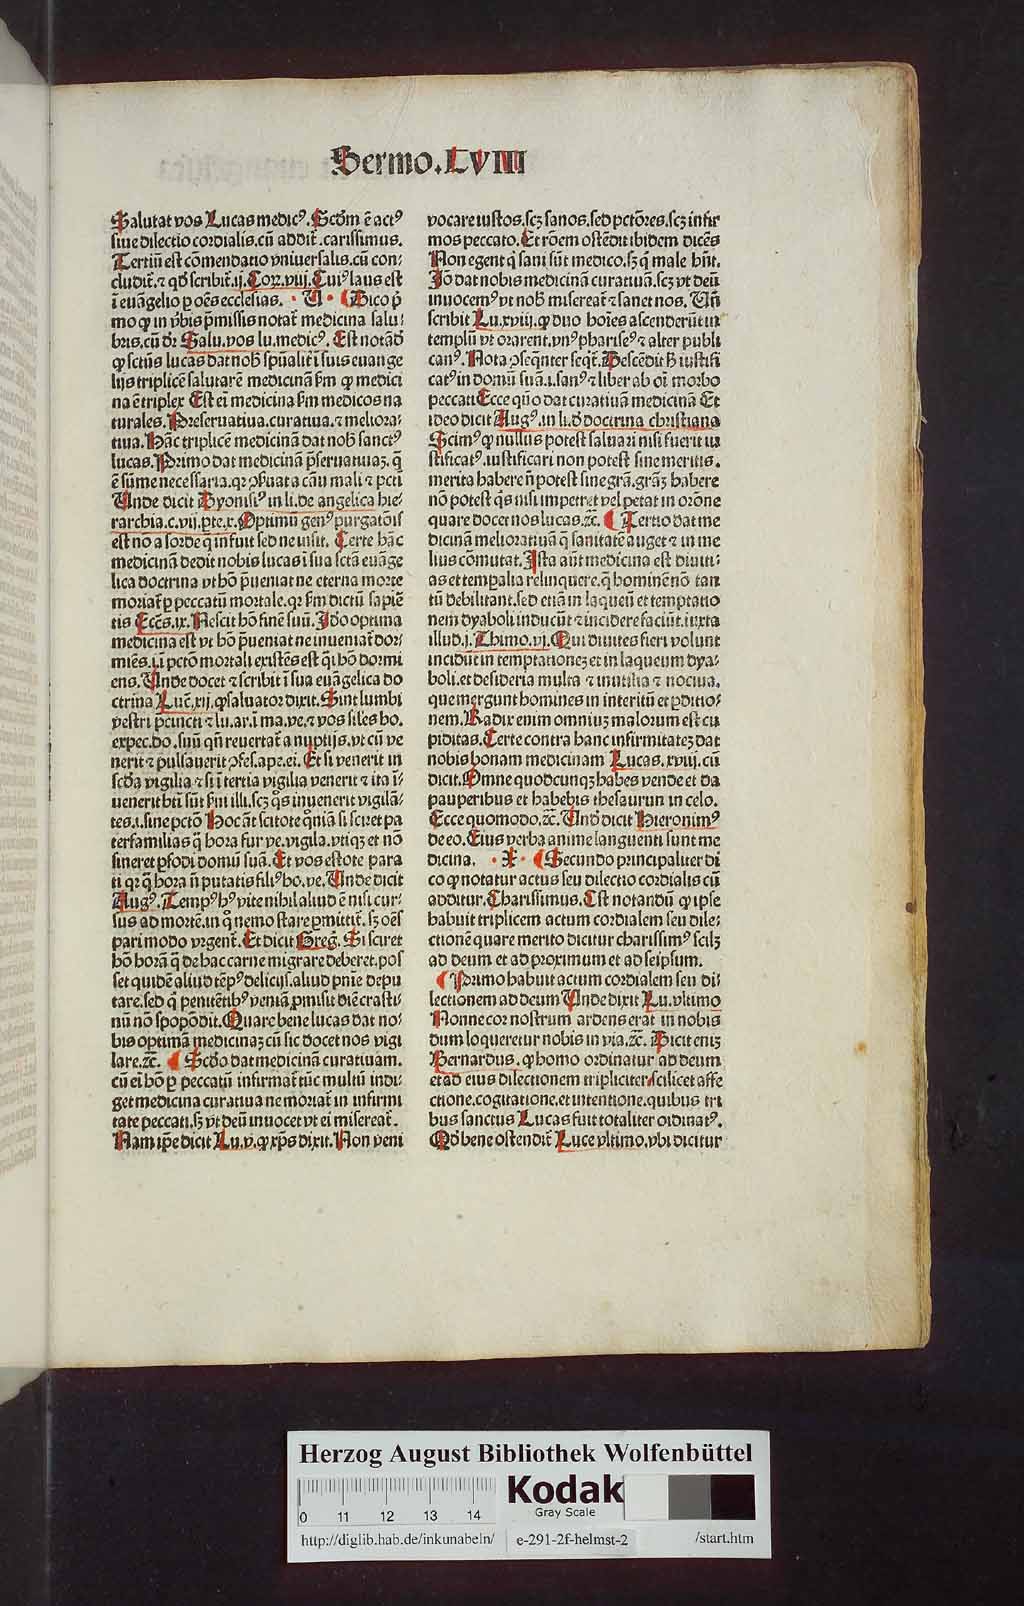 Sermo.LVIII
Salutat vos Lucas medicꝰ. Scd̃m ẽ actꝰ
siue dilectio cordialis.cũ addit̃.carissimus.
Terciũ est cõmendatio vniuersalis.cũ con-
cludit̃.⁊ qd̃ scribit̃.ij.Cor.viij.Cuiꝰ laus est
ĩ euãgelio ꝑ oẽs ecclesias. · V · Dico p̃
mo ꝙ in v̾bis p̃missis notat̃ medicina salu-
bris.cũ dr̃ Salu.vos lu.medicꝰ. Est notãd̃
ꝙ sctũs lucas dat nob̃ spũalit̾ ĩ suis euange
lijs triplicẽ salutarẽ medicinã fm̃ ꝙ medici
na ẽ triplex Est ei medicina fm̃ medicos na
turales. Preseruatiua.curatiua.⁊ meliora-
tiua. Hãc triplicẽ medicinã dat nob̃ sanctꝰ
lucas. Primo dat medicinã p̃seruatiuaꝫ. q̃
ẽ sũme necessaria.qꝛ p̾seruata cãm mali ⁊ pcti
Unde dicit Dyonisiꝰ in li.de angelica hie-
rarchia.c.vij.ꝑte.x. Optimũ genꝰ purgatõis
est nõ a sorde q̃ infuit sed ne insit. Certe hãc
medicinã dedit nobis lucas ĩ sua sctã euãge
lica doctrina vt hõ p̃ueniat ne eterna morte
moriat̃ ꝑ peccatũ mortale.qꝛ fm̃ dictũ sapiẽ
tis Eccs̃.ix. Nescit hõ finẽ suũ. Jdo optima
medicina est vt hõ p̃ueniat ne inueniat̃ dor-
miẽs.i.ĩ pctõ mortali existẽs est q̃i hõ dormi
ens. Unde docet ⁊ scribit ĩ sua euãgelica do
ctrina Luc̃.xij.ꝙ saluator dixit. Sint lumbi
vestri p̃cincti ⁊ lu.ar.ĩ ma.ve.⁊ vos siles ho.
expec.do.suũ qñ reuertat̃ a nuptijs.vt cũ ve
nerit ⁊ pulsauerit ꝯfes.ape.ei. Et si venerit in
scd̃a vigilia ⁊ si ĩ tertia vigilia venerit ⁊ ita ĩ-
uenerit bti sũt fm̃ illi.scꝫ q̾s inuenerit vigilã-
tes.i.sine pctõ Hoc aũt scitote qm̃ia si sciret pa
terfamilias q̃ hora fur ve.vigila.vtiqꝫ et nõ
sineret ꝑfodi domũ suã. Et vos estote para
ti qꝛ q̃ hora ñ putatis filiꝰ ho.ve. Unde dicit
Augꝰ. Tempꝰ hꝰ vite nihil aliud ẽ nisi cur-
sus ad mortẽ.in q̾ nemo stare ꝑmittit̃.sꝫ oẽs
pari modo vrgent̃. Et dicit Greg̃. Si sciret
hõ horã q̃ de hac carne migrare deberet.pos
set quidẽ aliud tẽpꝰ delicijs.aliud pñie depu
tare.sed q̃ penitẽtibꝰ veniã ꝓmisit diẽ crasti-
nũ nõ spopõdit. Quare bene lucas dat no-
bis optimã medicinaꝫ cũ sic docet nos vigi
lare.⁊c̃. Scd̃o dat medicinã curatiuam.
cũ ei hõ ꝑ peccatũ infirmat̃ tũc multũ indi-
get medicina curatiua ne moriat̃ in infirmi
tate peccati.sꝫ vt deũ inuocet vt ei misereat̃.
Nam ip̃e dicit Lu.v.ꝙ xp̃s dixit. Non veni
vocare iustos.scꝫ sanos.sed pctõres.scꝫ infir
mos peccato. Et rõem ostẽdit ibidem dicẽs
Non egent q̃ sani sũt medico.sꝫ q̃ male hñt.
Jõ dat nobis medicinã curatiuã.scꝫ vt deũ
inuocemꝰ vt nob̃ misereat̃ ⁊ sanet nos. Un̄
scribit Lu.xviij.ꝙ duo hoĩes ascenderũt in
templũ vt orarent.vnꝰ phariseꝰ ⁊ alter publi
canꝰ. Nota ꝯseq̃nter seqt̃. Descẽdit h̃ iustifi
catꝰ in domũ suã.i.sanꝰ ⁊ liber ab oĩ morbo
peccati Ecce quo dat curatiuã medicinã Et
ideo dicit Augꝰ.in li.d̃ doctrina christiana
Scimꝰ ꝙ nullus potest saluari nisi fuerit iu
stificatꝰ.iustificari non potest sine meritis.
merita habere ñ potest sine grã.grãꝫ habere
nõ potest q̃s nisi impetret vel petat in orõne
quare docet nos lucas.⁊c̃. Tertio dat me
dicinã melioratiuã q̃ sanitatẽ auget ⁊ in me
lius cõmutat. Ista aũt medicina est diuiti-
as et temp̱alia relinquere.q̃ hominẽ nõ tan
tũ debilitant.sed etiã in laqueũ et temptatio
nem dyaboli inducũt ⁊ incidere faciũt.iuxta
illud.j.Thimo.vj. Qui diuites fieri volunt
incidũt in temptationeꝫ et in laqueum dya-
boli.et desideria multa ⁊ inutilia ⁊ nociua.
que mergunt homines in interitũ et ꝑditio-
nem. Radix enim omniuꝫ malorum est cu
piditas. Certe contra hanc infirmitateꝫ dat
nobis bonam medicinam Lucas.xviij.cũ
dicit. Omne quodcunqꝫ habes vende et da
pauperibus et habebis thesaurun in celo.
Ecce quomodo.⁊c̃. Und̃ dicit Hieronimꝰ
de eo. Eius verba anime languenti sunt me
dicina. · X · Secundo principaliter di
co ꝙ notatur actus seu dilectio cordialis cũ
additur. Charissimus. Est notandũ ꝙ ipse
habuit triplicem actum cordialem seu dile-
ctionẽ quare merito dicitur charissimꝰ scilꝫ
ad deum et ad proximum et ad seipsum.
Primo habuit actum cordialem seu di-
lectionem ad deum Unde dixit Lu.vltimo
Nonne cor nostrum ardens erat in nobis
dum loqueretur nobis in via.⁊c̃. Dicit eniꝫ
Bernardus.ꝙ homo ordinatur ad deum
et ad eius dilectionem tripliciter/scilicet affe
ctione.cogitatione.et intentione.quibus tri
bus sanctus Lucas fuit totaliter ordinatꝰ.
Qd̃ bene ostendit̃ Luce vltimo.vbi dicitur
Herzog August Bibliothek Wolfenbüttel
0 11 12 13 14
Kodak
Gray Scale
http://diglib.hab.de/inkunabeln/ e-291-2f-helmst-2 /start.htm